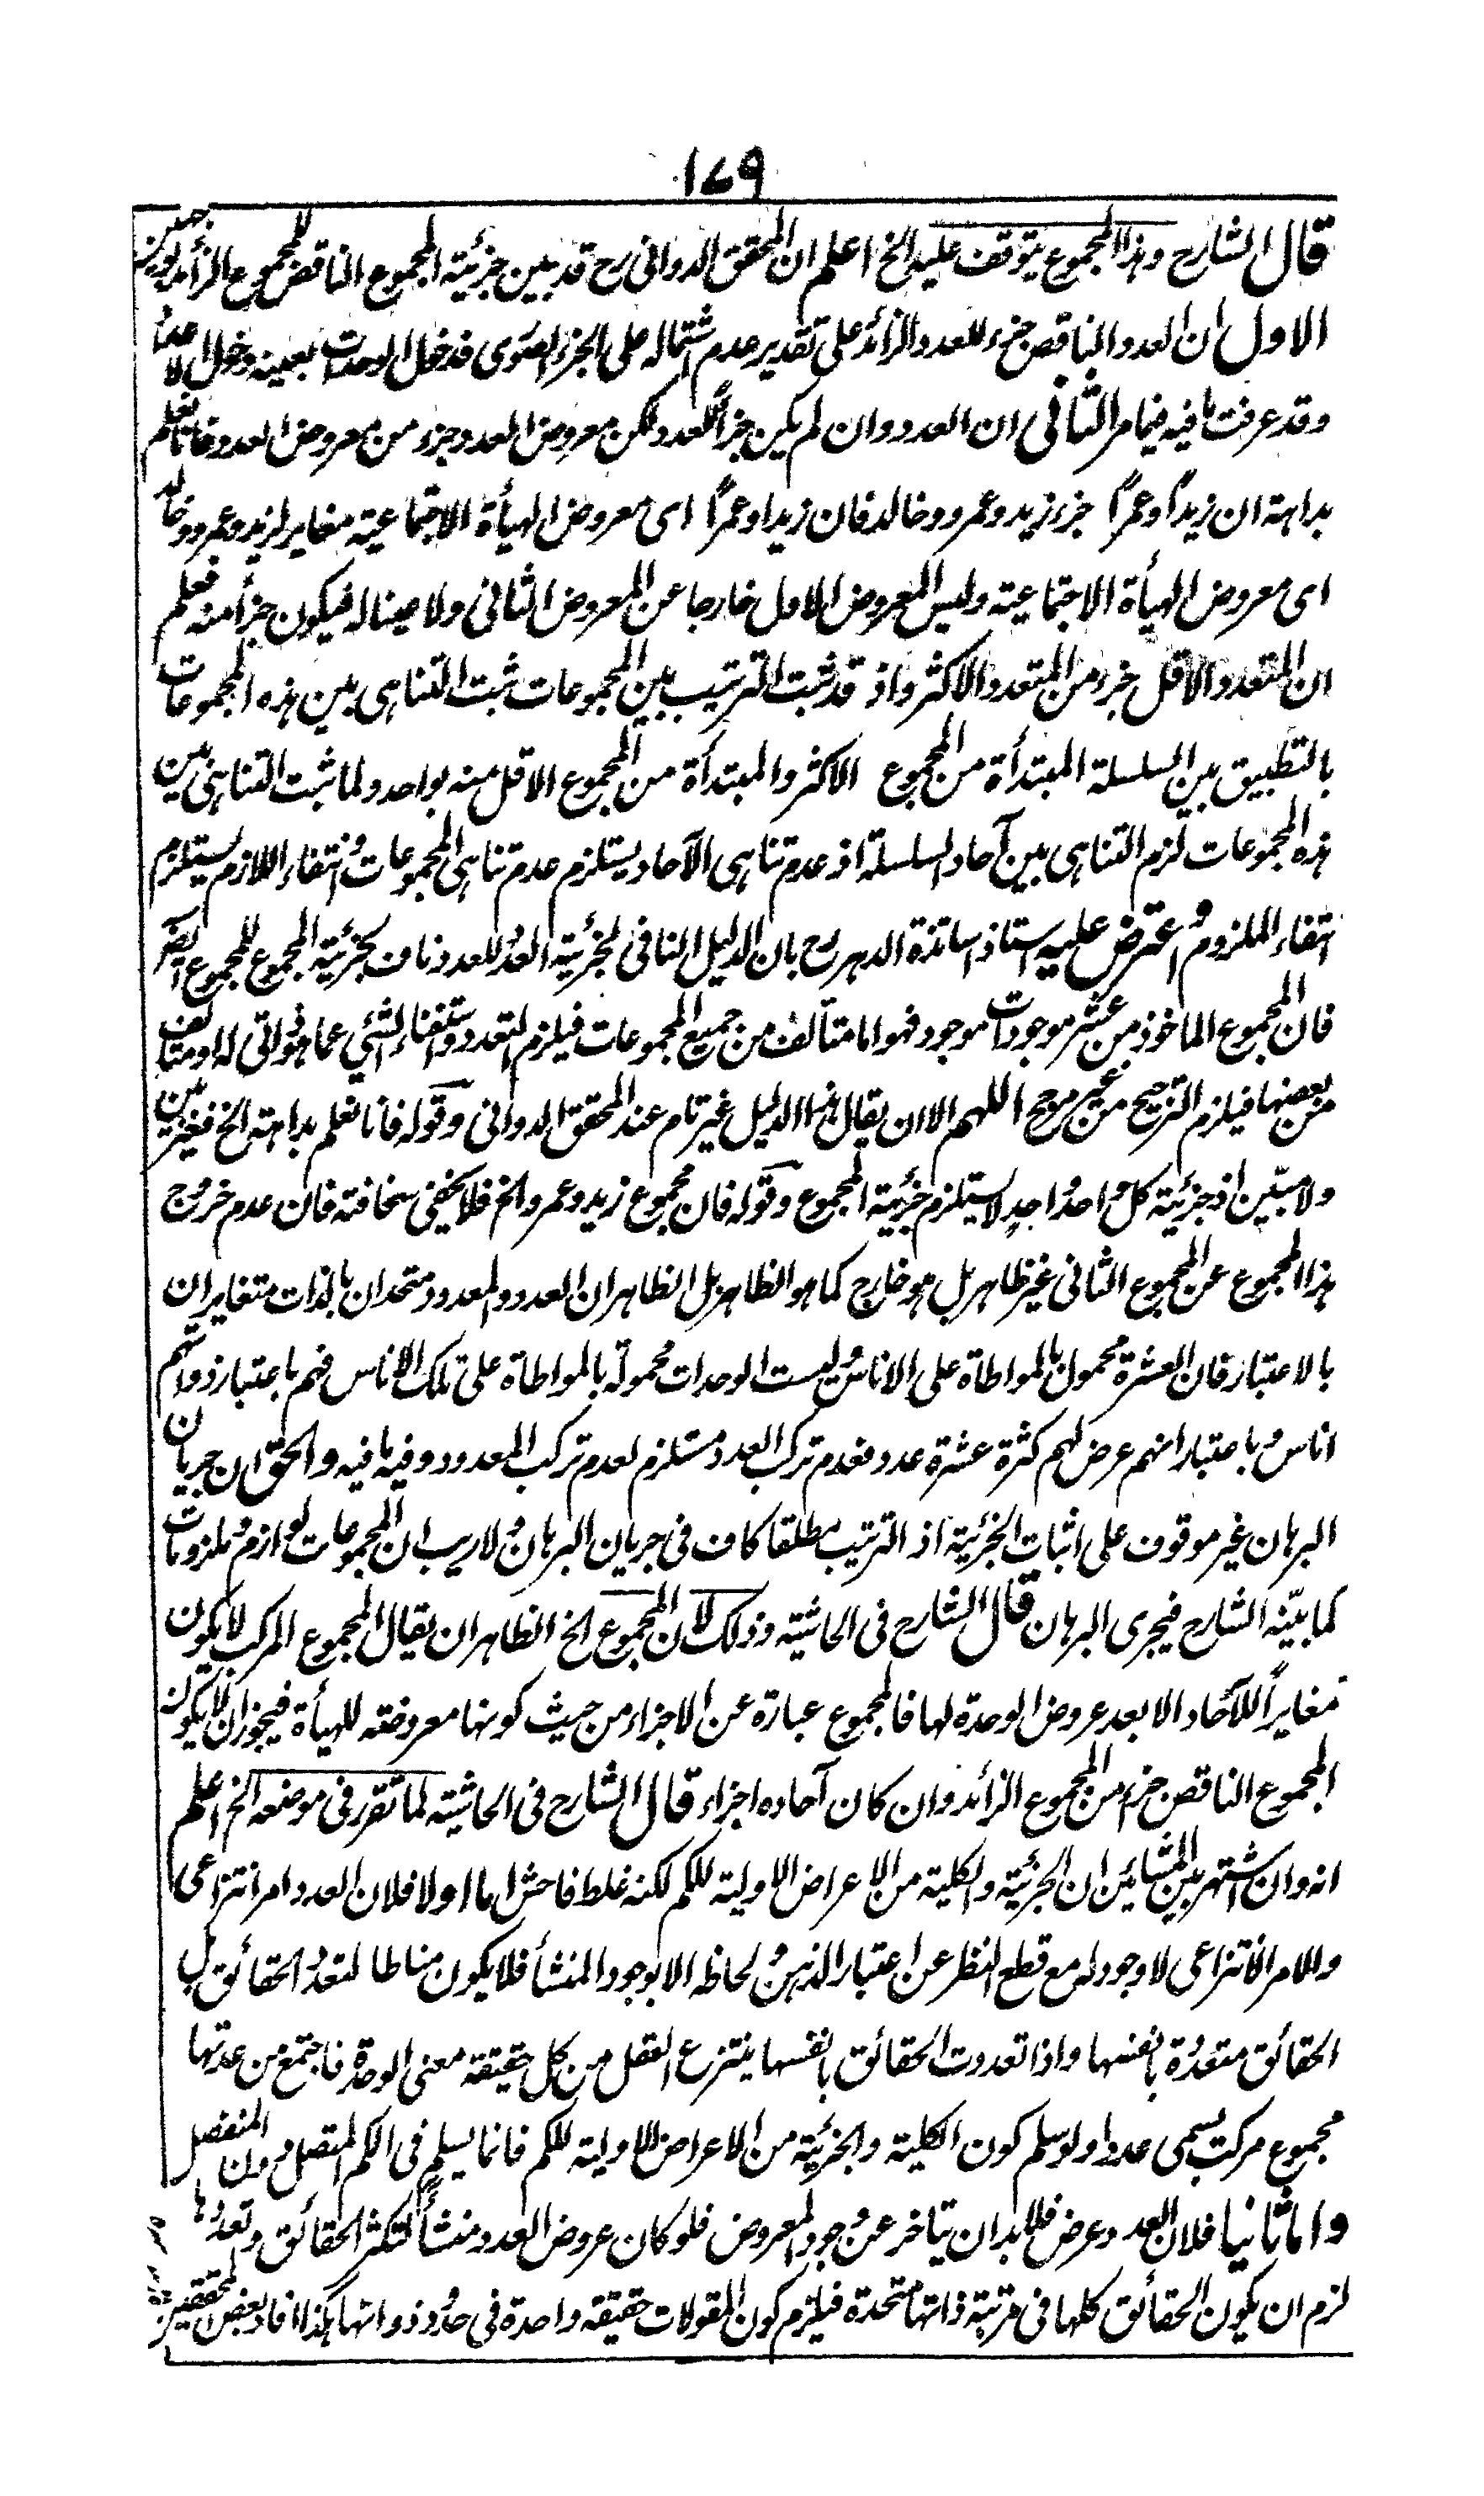 ١٧٩
قال الشارح وهذا المجموع يتوقف عليه الخ اعلم ان المحقق الدواني رح قد بين جزئية المجموع الناقص للمجموع الزائد بوجهين
الاول ان العدد الناقص جزء للعدد الزائد على تقدير عدم اشتماله على الجزء الصوري فدخال الوحدات بعينه دخول الاعداد
وقد عرفت ما فيه فيما مر الثاني ان العدد وان لم يكن جزأ للعدد لكن معروض العدد جزء من معروض العدد فانا نعلم
بداهة ان زيداً وعمراً جزء زيد وعمرو وخالد فان زيدا وعمراً اى معروض الهيأة الاجتماعية مغاير لزيد وعمرو وخالد
اى معروض الهيأة الاجتماعية وليس المعروض الاول خارجا عن المعروض الثاني ولا عينا له فيكون جزأ منه فعلم
ان المتعدد الاقل جزء من المتعدد الاكثر واذ قد ثبت الترتيب بين المجموعات ثبت التناهي بين هذه المجموعات
بالتطبيق بين السلسلة المبتدأة من المجموع الاكثر والمبتدأة من المجموع الاقل منه بواحد ولما ثبت التناهي بين
هذه المجموعات لزم التناهي بين آحاد السلسلة اذ عدم تناهي الآحاد يستلزم عدم تناهي المجموعات وانتفاء اللازم يستلزم
انتفاء الملزوم واعترض عليه استاذ اساتذة الدهر رح بان الدليل النافي لجزئية العدد للعدد ناف لجزئية المجموع للمجموع
فان المجموع الماخوذ من عشر موجودات موجود فهو اما متألف من جميع المجموعات فيلزم التعدد واستغناء الشئ عما هو ذاتي له او متألف
من بعضها فيلزم الترجيح من غير مرجح اللهم الا ان يقال هذا الدليل غير تام عند المحقق الدواني وقوله فانا نعلم بداهة الخ فغير بين
ولا مبيّن اذ جزئية كل واحد واحدٍ لا يستلزم جزئية المجموع وقوله فان مجموع زيد وعمرو الخ فلا يخفى سخافته فان عدم خروج
هذا المجموع عن المجموع الثاني غير ظاهر بل هو خارج كما هو الظاهر بل الظاهر ان العدد والمعدود متحدان بالذات متغايران
بالاعتبار فان العشرة محمول بالمواطاة على الاناس وليست الوحدات محمولة بالمواطاة على تلك الاناس فهم باعتبار ذواتهم
اناس وباعتبار انهم عرض لهم كثرة عشرة عدد فعدم تركب العدد مستلزم لعدم تركب المعدود وفيه ما فيه والحق ان جريان
البرهان غير موقوف على اثبات الجزئية اذ الترتيب مطلقا كاف في جريان البرهان ولا ريب ان المجموعات لوازم وملزومات
كما بيّنه الشارح فيجرى البرهان قال الشارح في الحاشية وذلك لان المجموع الخ الظاهر ان يقال المجموع المركب لا يكون
مغايراً للآحاد الا بعد عروض الوحدة لها فالمجموع عبارة عن الاجزاء من حيث كونها معروضه للهيأة فيجوز ان لا يكون
المجموع الناقص جزء من المجموع الزائد وان كان آحاده اجزاء قال الشارح في الحاشية لما تقرر في موضعه الخ اعلم
انه وان اشتهر بين المشائين ان الجزئية والكلية من الاعراض الاولية للكم لكنه غلط فاحش اما اولا فلان العدد امر انتزاعى
وللامر الانتزاعى لا وجود له مع قطع النظر عن اعتبار الذهن ولحاظه الا بوجود المنشأ فلا يكون مناطا لتعدد الحقائق بل
الحقائق متعددة بانفسها واذا تعددت الحقائق بانفسها ينتزع العقل من كل حقيقة معنى الوحدة فاجتمع من عدتها
مجموع مركب يسمى عددا ولو سلم كون الكلية والجزئية من الاعراض الاولية للكم فانما يسلم في الكم المتصل دون المنفصل
واما ثانيا فلان العدد عرض فلا بد ان يتاخر عن وجود المعروض فلو كان عروض العدد منشأً لتكثر الحقائق وتعددها
لزم ان يكون الحقائق كلها في مرتبة ذاتها متحدة فيلزم كون المقولات حقيقة واحدة في حدود ذواتها هكذا افاد بعض المحققين